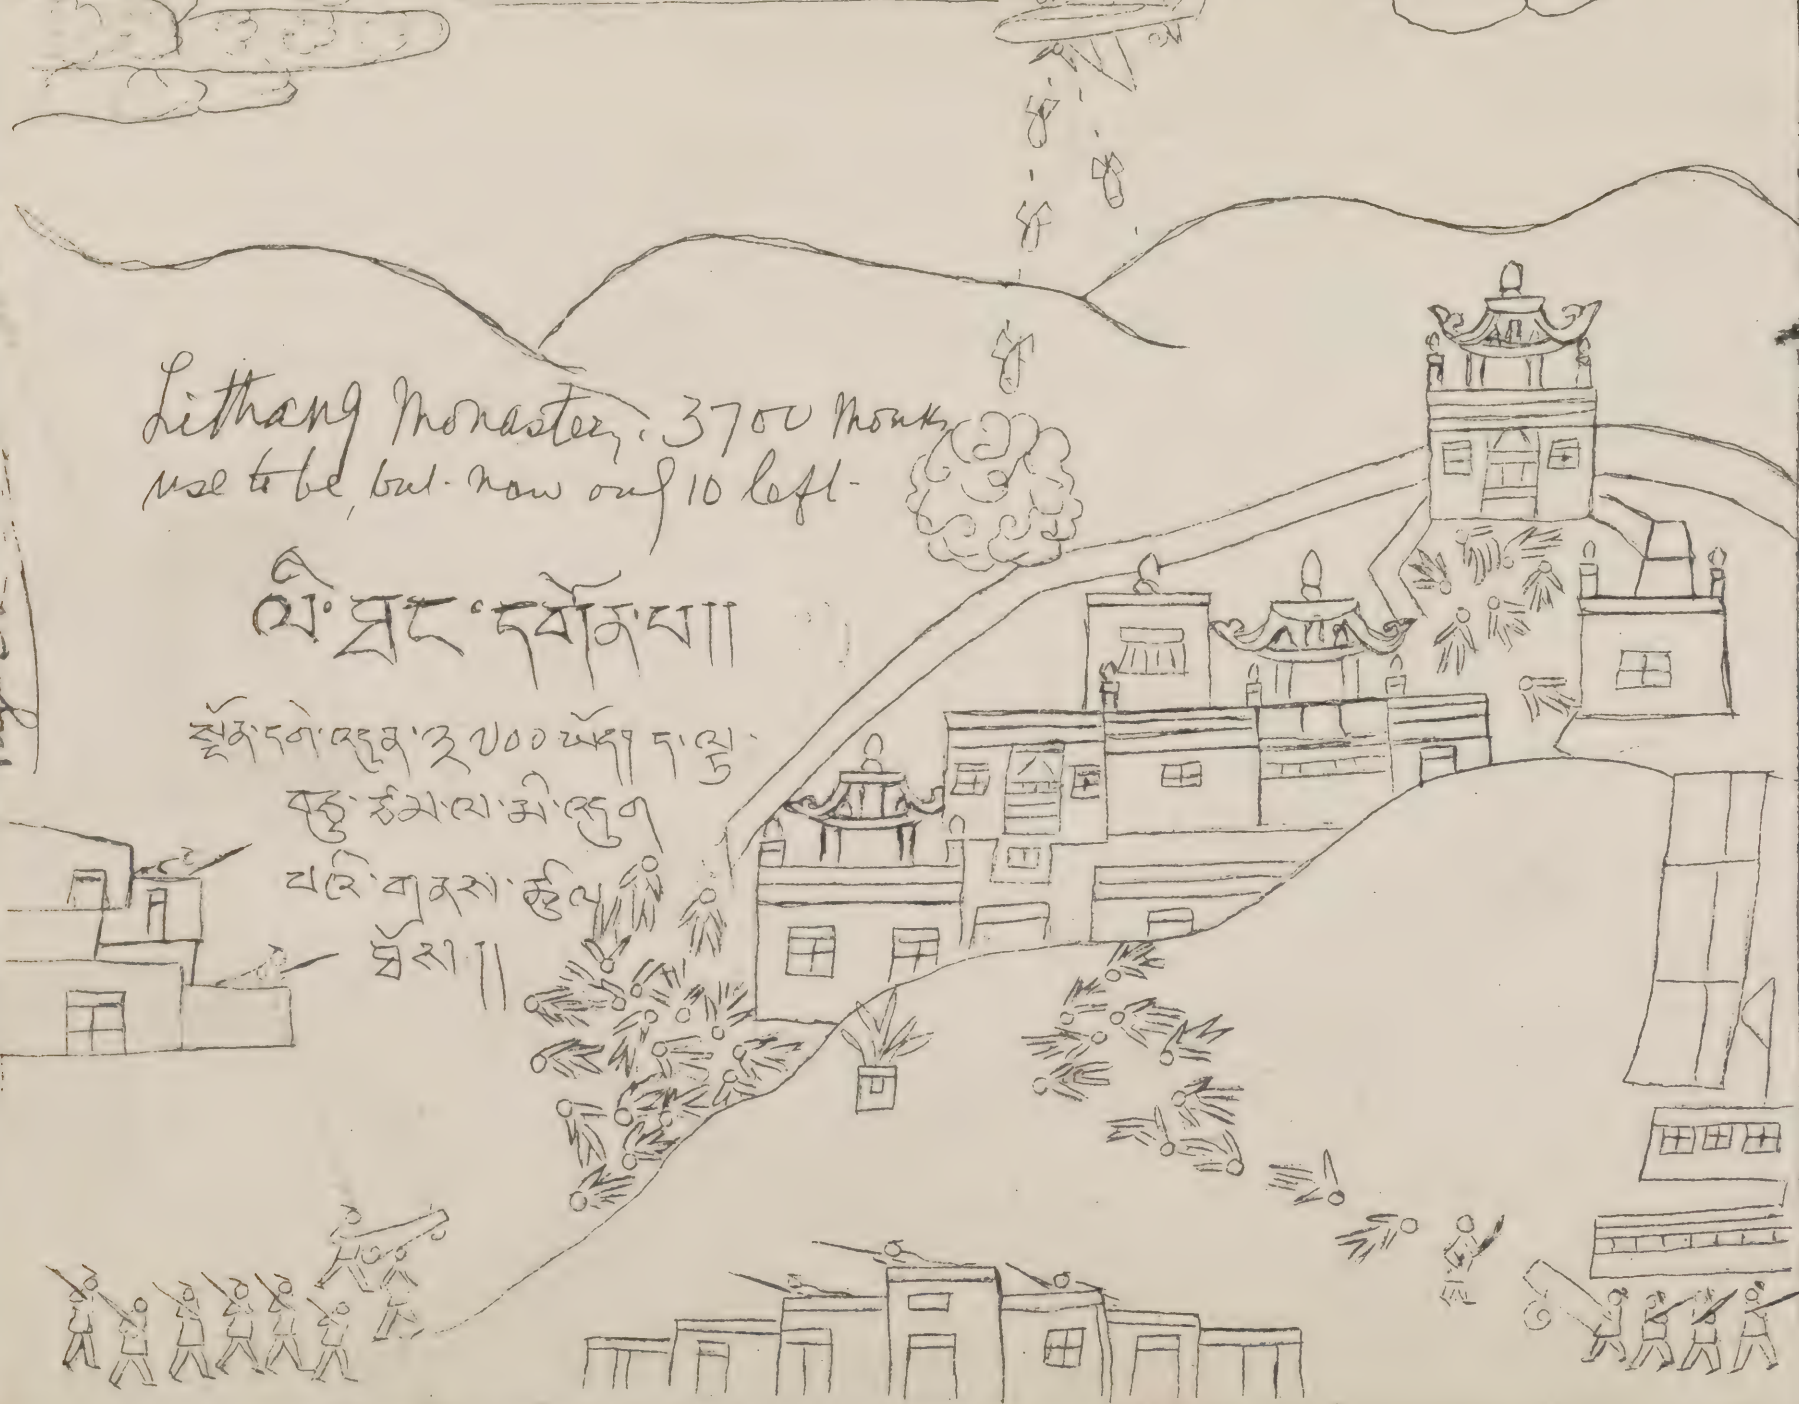 Lithang Monastery. 3700 Monks
use to be, but now only 10 left
ལི་ཐང་དགོན་པ།།
སྔོན་དགེ་འདུན་༣༧༠༠ ཡོད། ད་ལྟ་
བཅུ་ཙམ་ལས་མི་འདུག